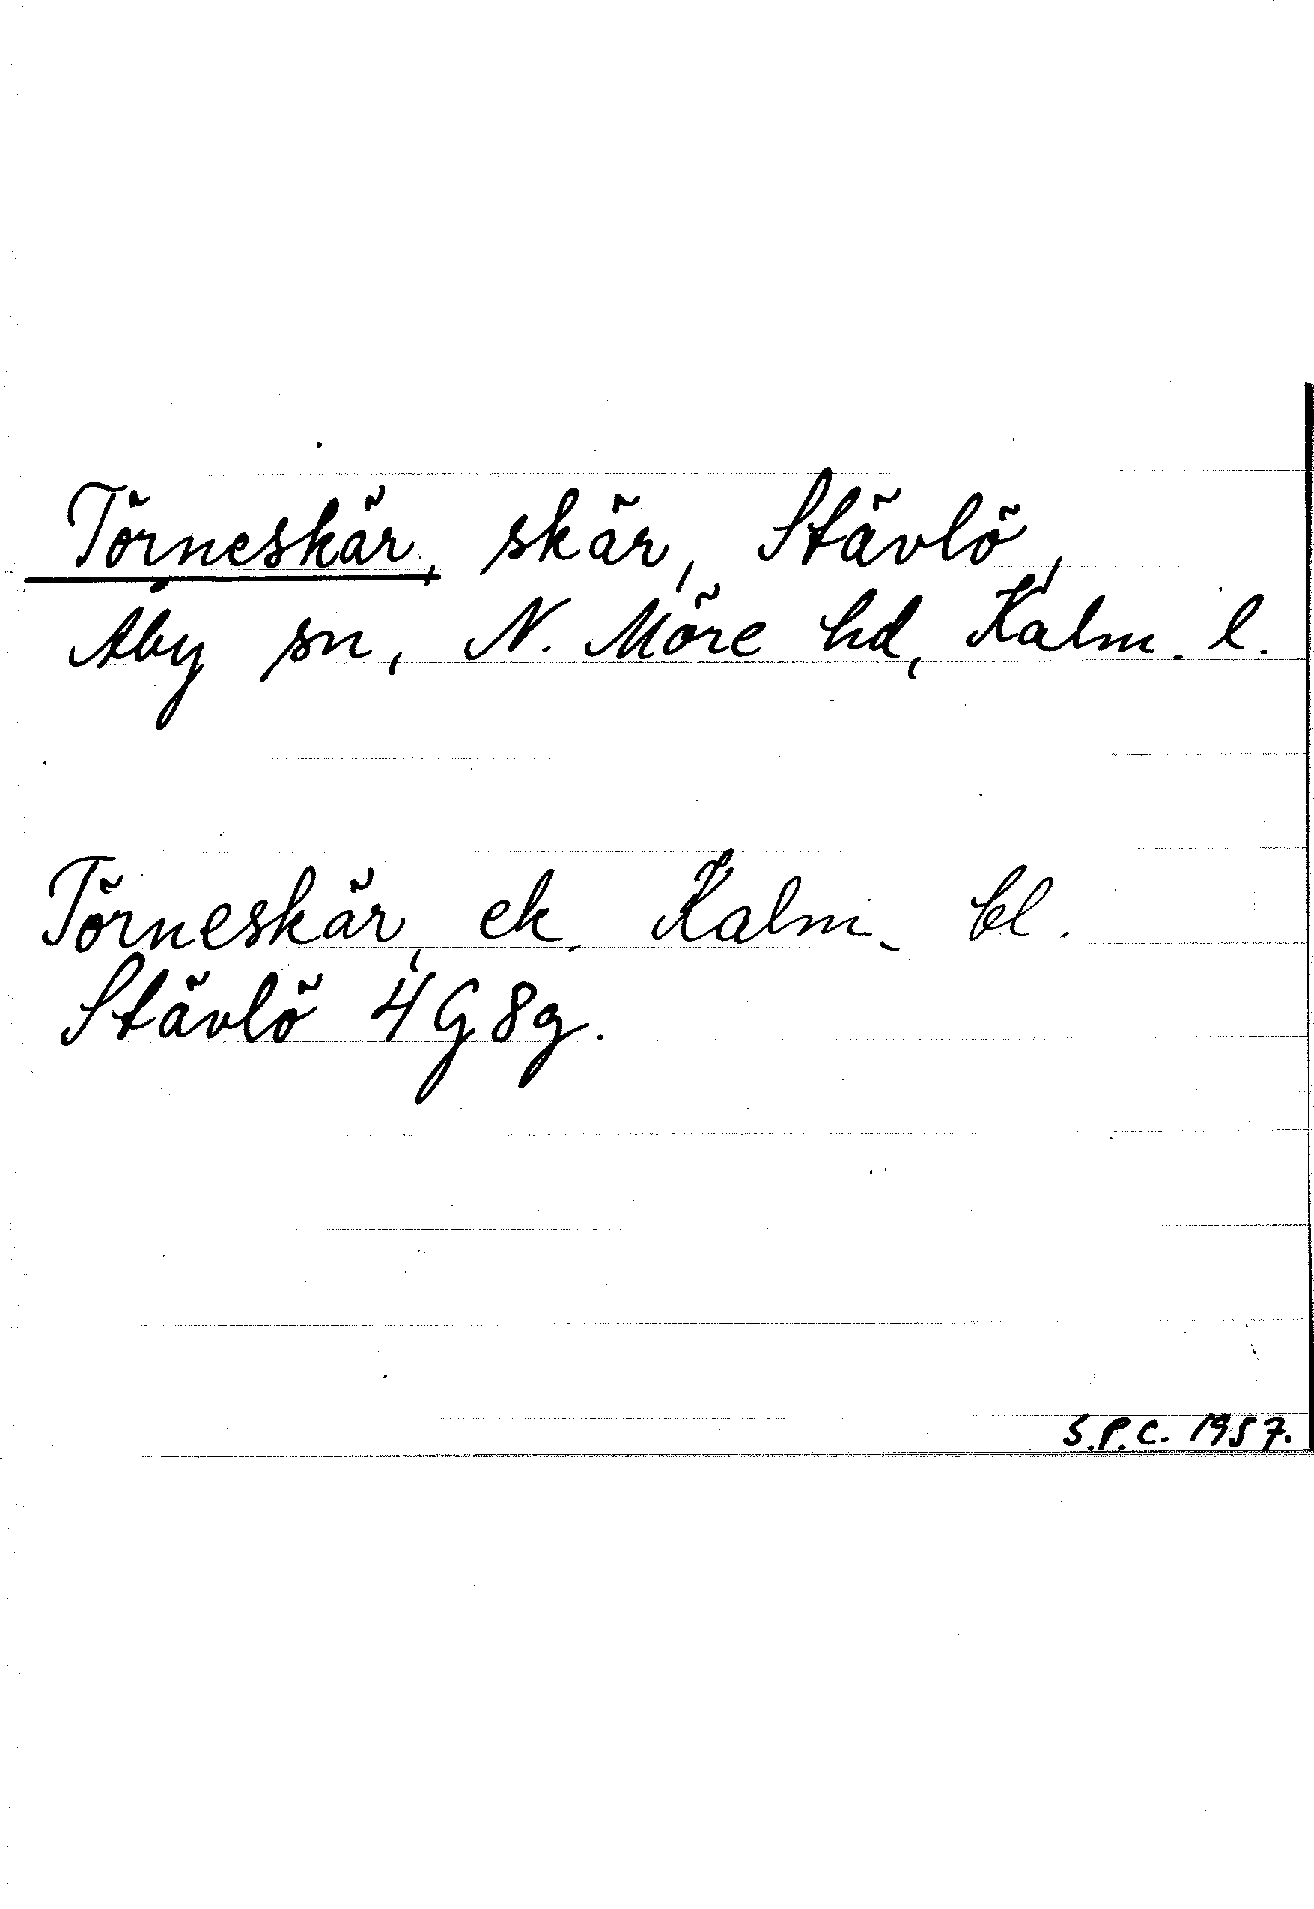 Törneskär, skär, Stävlö,
Åby sn, N. Möre hd, Kalm. l.
Törneskär, ek. Kalm. bl.
Stävlö 4G8g.
S.P.C. 1957.